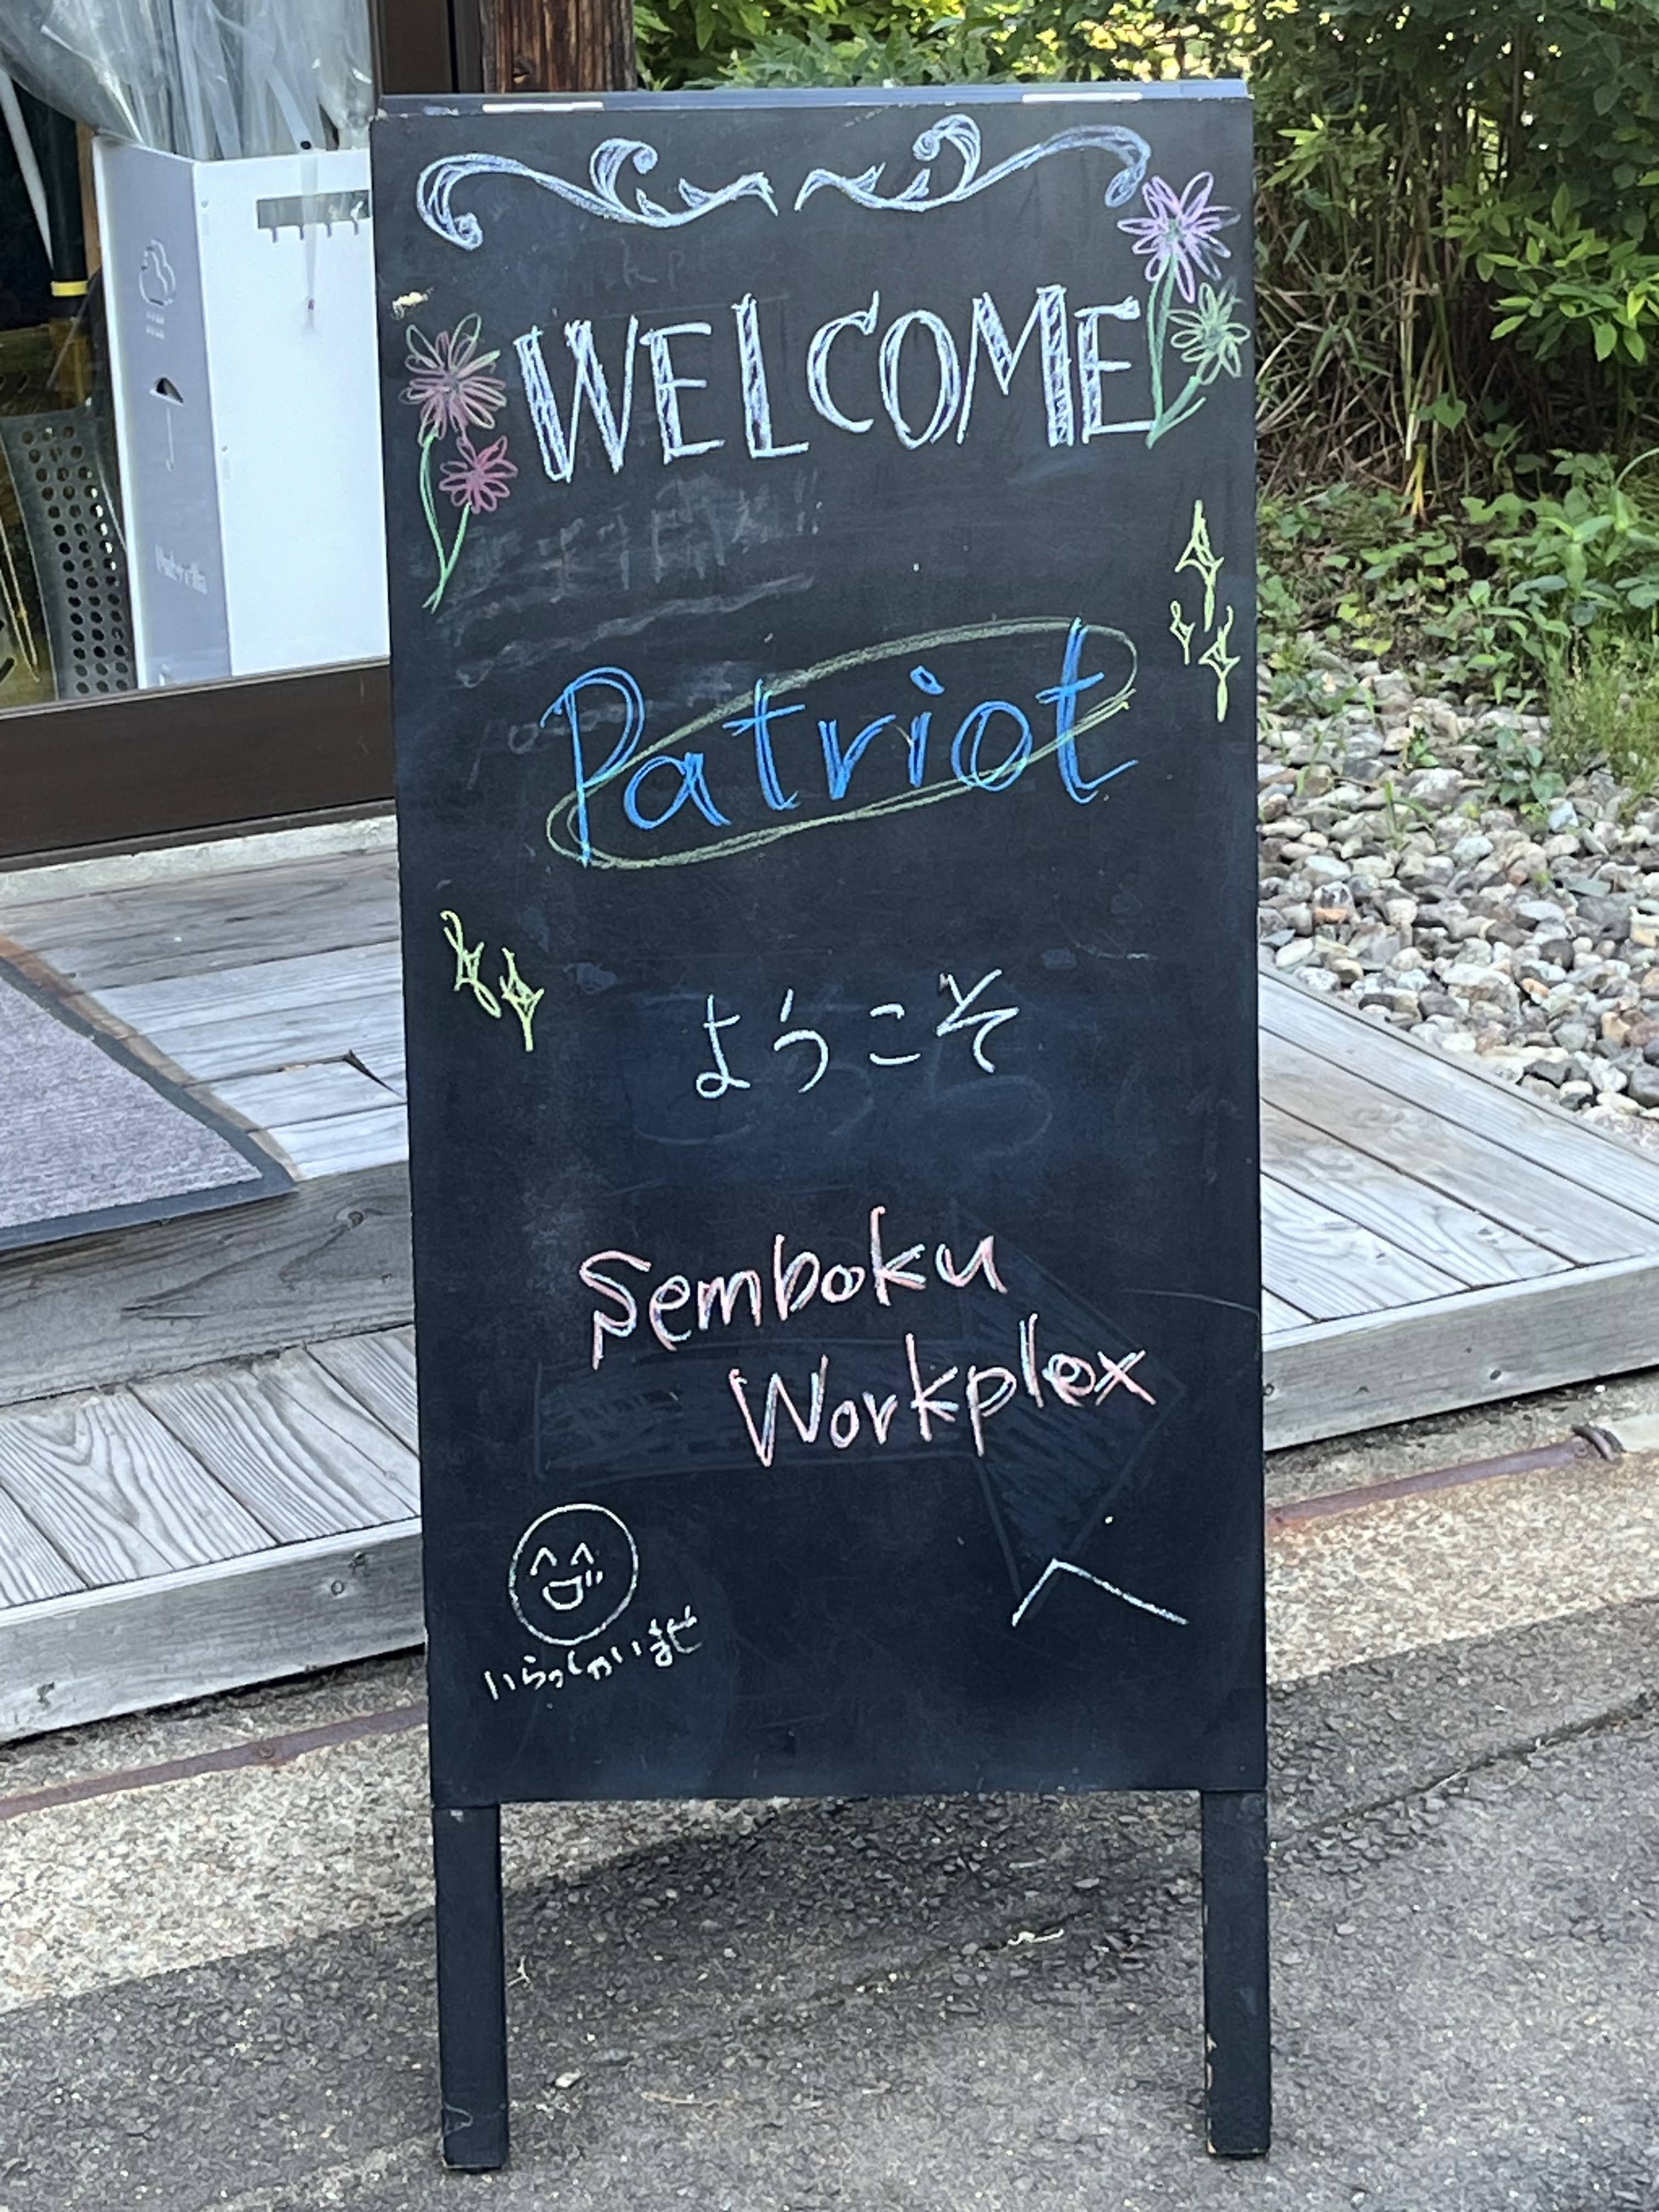 WELCOME
Patriot
ようこそ
Semboku
Workplex
へ
いらっしゃいませ